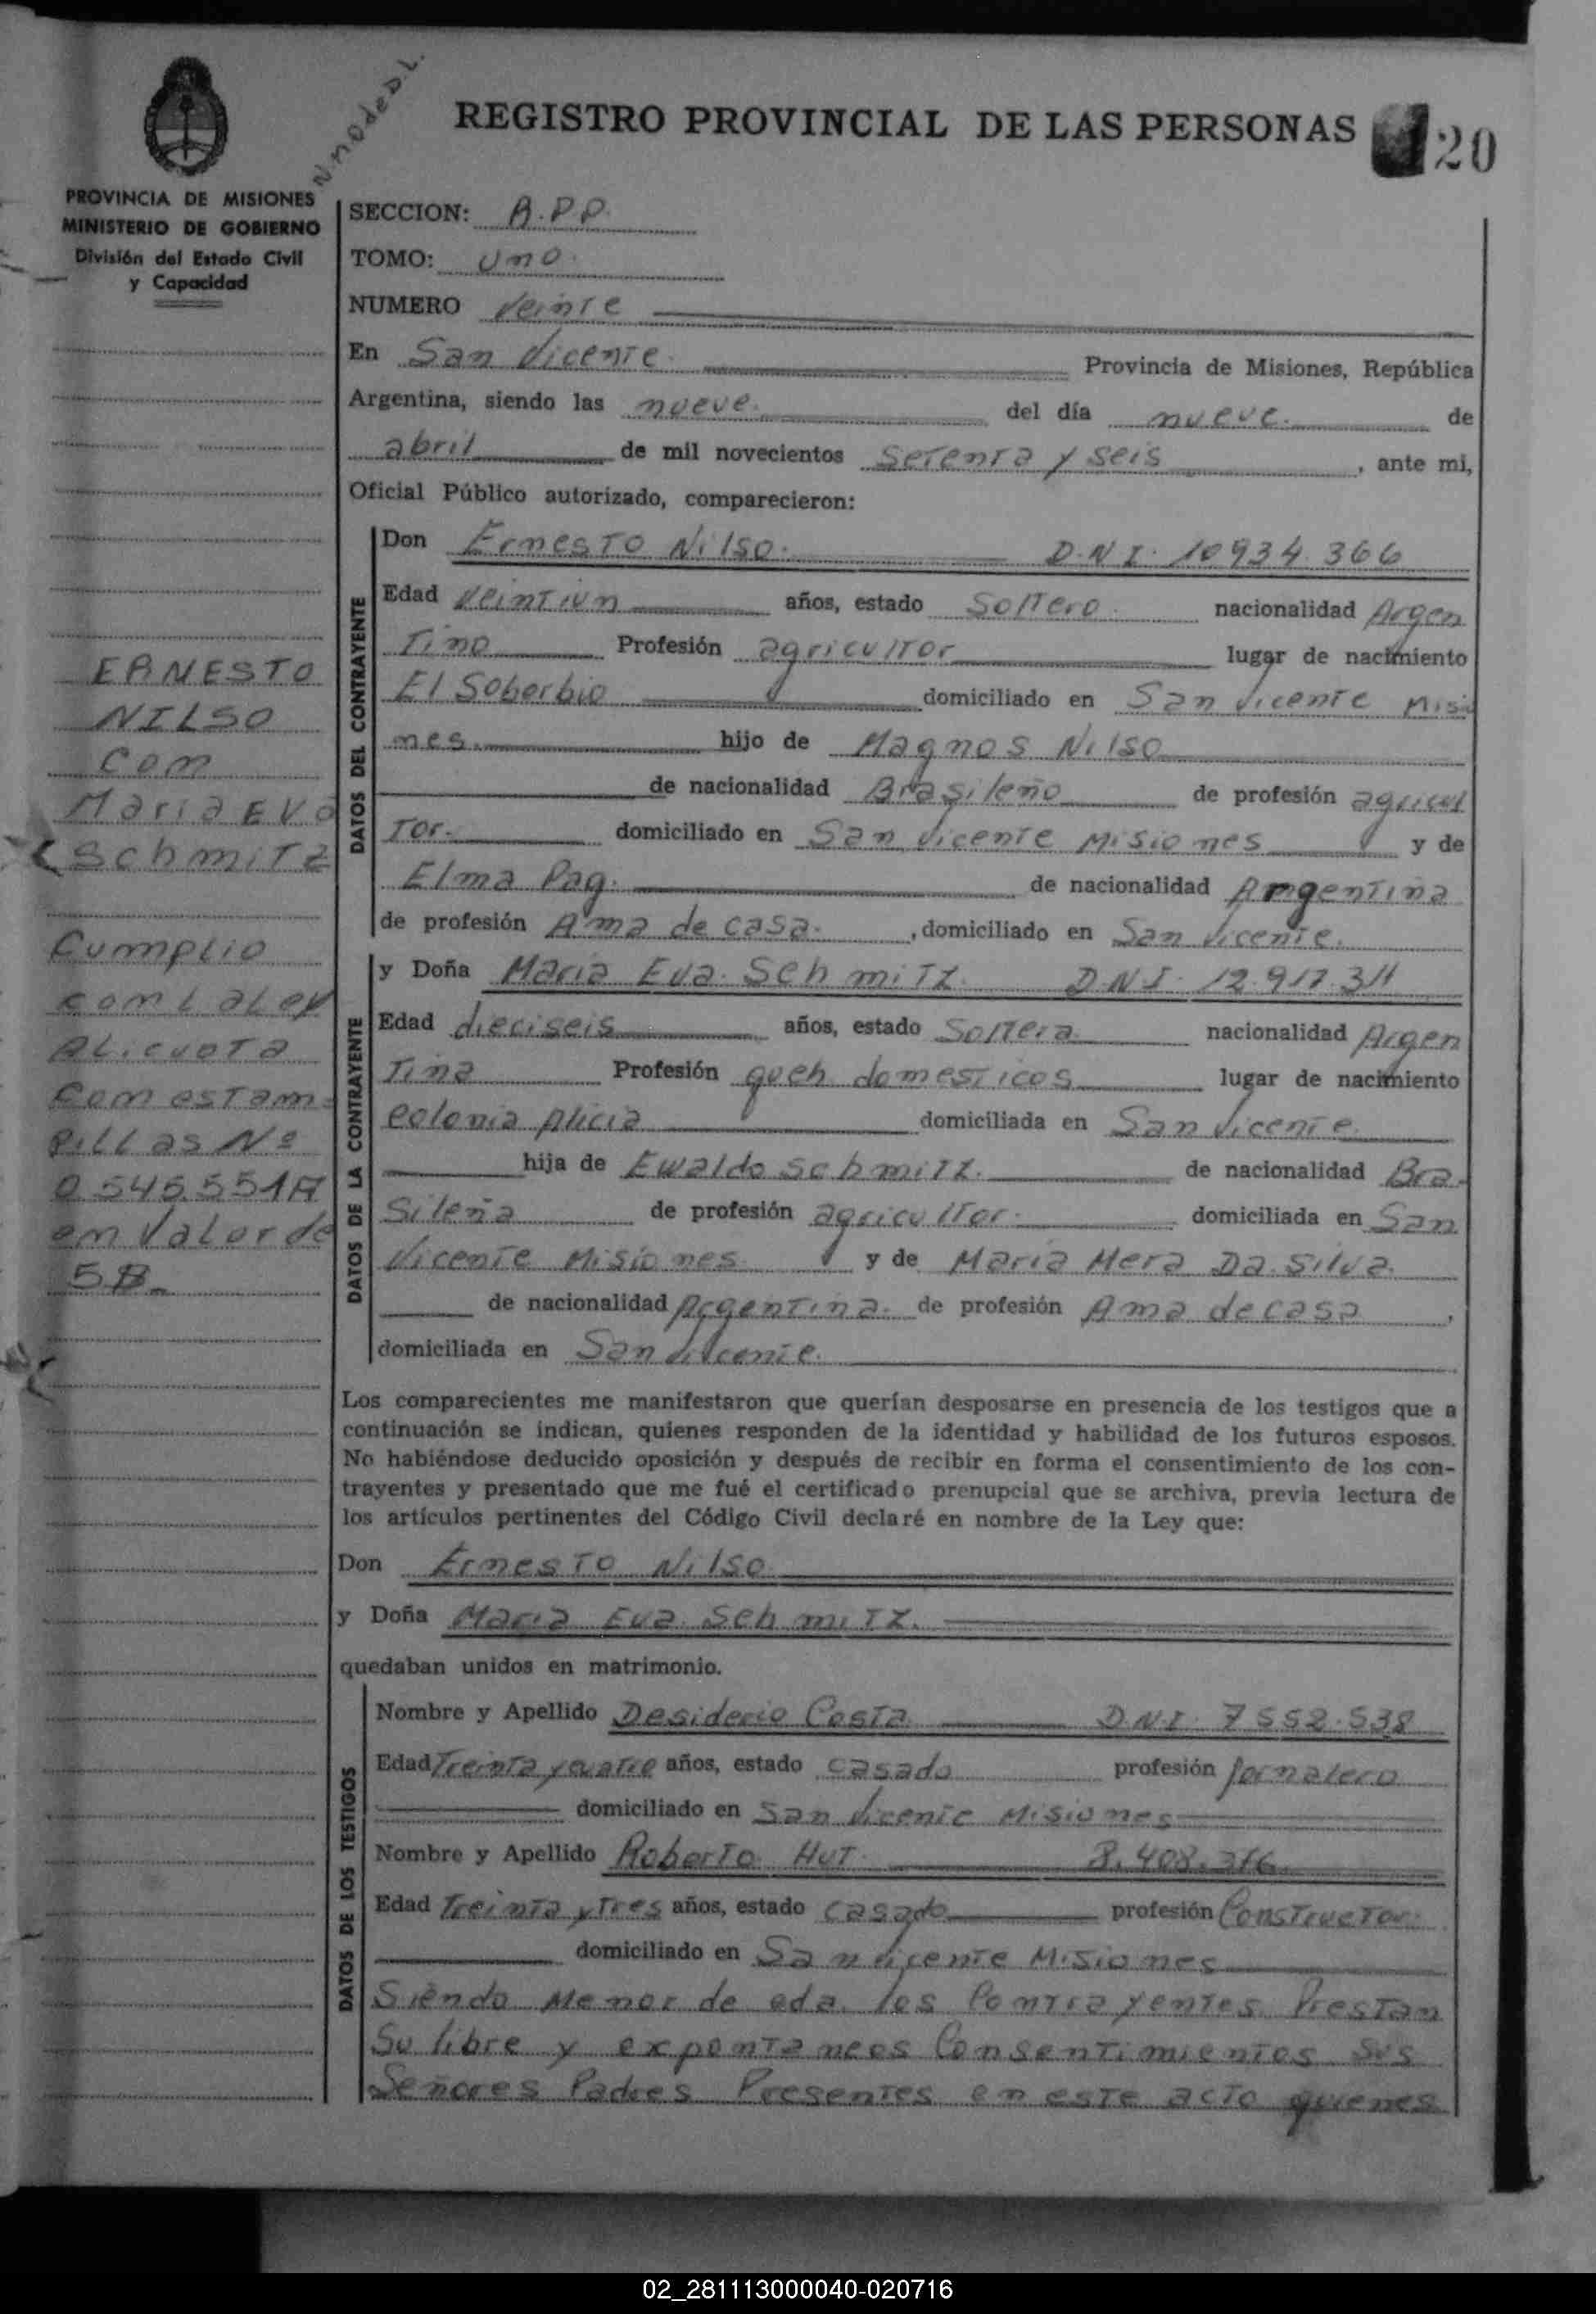 REGISTRO PROVINCIAL DE LAS PERSONAS
20
PROVINCIA DE MISIONES
MINISTERIO DE GOBIERNO
División del Estado Civil
y Capacidad
ERNESTO
NILSO
Con
Maria EVa
Schmitz
Cumplio
con L a Ley
ALicuota
Con estam-
pillas Nº
0.545.551A
en Valor de
5 $.
SECCION: A.P.P.
TOMO: Uno.
NUMERO Veinte
En San Vicente. Provincia de Misiones, República
Argentina, siendo las nueve. del día nueve. de
abril de mil novecientos Setenta y seis, ante mi,
Oficial Público autorizado, comparecieron:
DATOS DEL CONTRAYENTE
Don Ernesto Nilso. D.N.I. 10.934.366
Edad Veintiun años, estado Soltero. nacionalidad Argen
Tino Profesión agricultor lugar de nacimiento
El Soberbio domiciliado en San Vicente Misio
nes. hijo de Magnos Nilso
de nacionalidad Brasileño de profesión agricul
Tor. domiciliado en San Vicente Misiones y de
Elma Pag. de nacionalidad Argentina
de profesión Ama de casa., domiciliado en San Vicente.
DATOS DE LA CONTRAYENTE
y Doña Maria Eva Schmitz. D.N.I. 12.917.311
Edad dieciseis años, estado Soltera nacionalidad Argen
Tina Profesión queh domesticos lugar de nacimiento
Colonia Alicia domiciliada en San Vicente.
hija de Ewaldo Schmitz. de nacionalidad Bra-
Sileña de profesión agricultor. domiciliada en San
Vicente Misiones. y de Maria Mera Da. Silva.
de nacionalidad Argentina. de profesión Ama de casa,
domiciliada en San Vicente.
Los comparecientes me manifestaron que querían desposarse en presencia de los testigos que a
continuación se indican, quienes responden de la identidad y habilidad de los futuros esposos.
No habiéndose deducido oposición y después de recibir en forma el consentimiento de los con-
trayentes y presentado que me fué el certificado prenupcial que se archiva, previa lectura de
los artículos pertinentes del Código Civil declaré en nombre de la Ley que:
Don Ernesto Nilso.
y Doña Maria Eva Schmitz.
quedaban unidos en matrimonio.
DATOS DE LOS TESTIGOS
Nombre y Apellido Desiderio Costa. D.N.I. 7.552.538
Edad Treinta y cuatro años, estado casado profesión Jornalero
domiciliado en San Vicente Misiones
Nombre y Apellido Roberto Hut. 8.408.316
Edad Treinta y Tres años, estado casado profesión Constructor.
domiciliado en San Vicente Misiones
Siendo Menor de eda. los Contrayentes Prestan
Su libre y expontaneos Consentimientos Sus
Señores Padres Presentes en este acto quienes
02_281113000040-020716